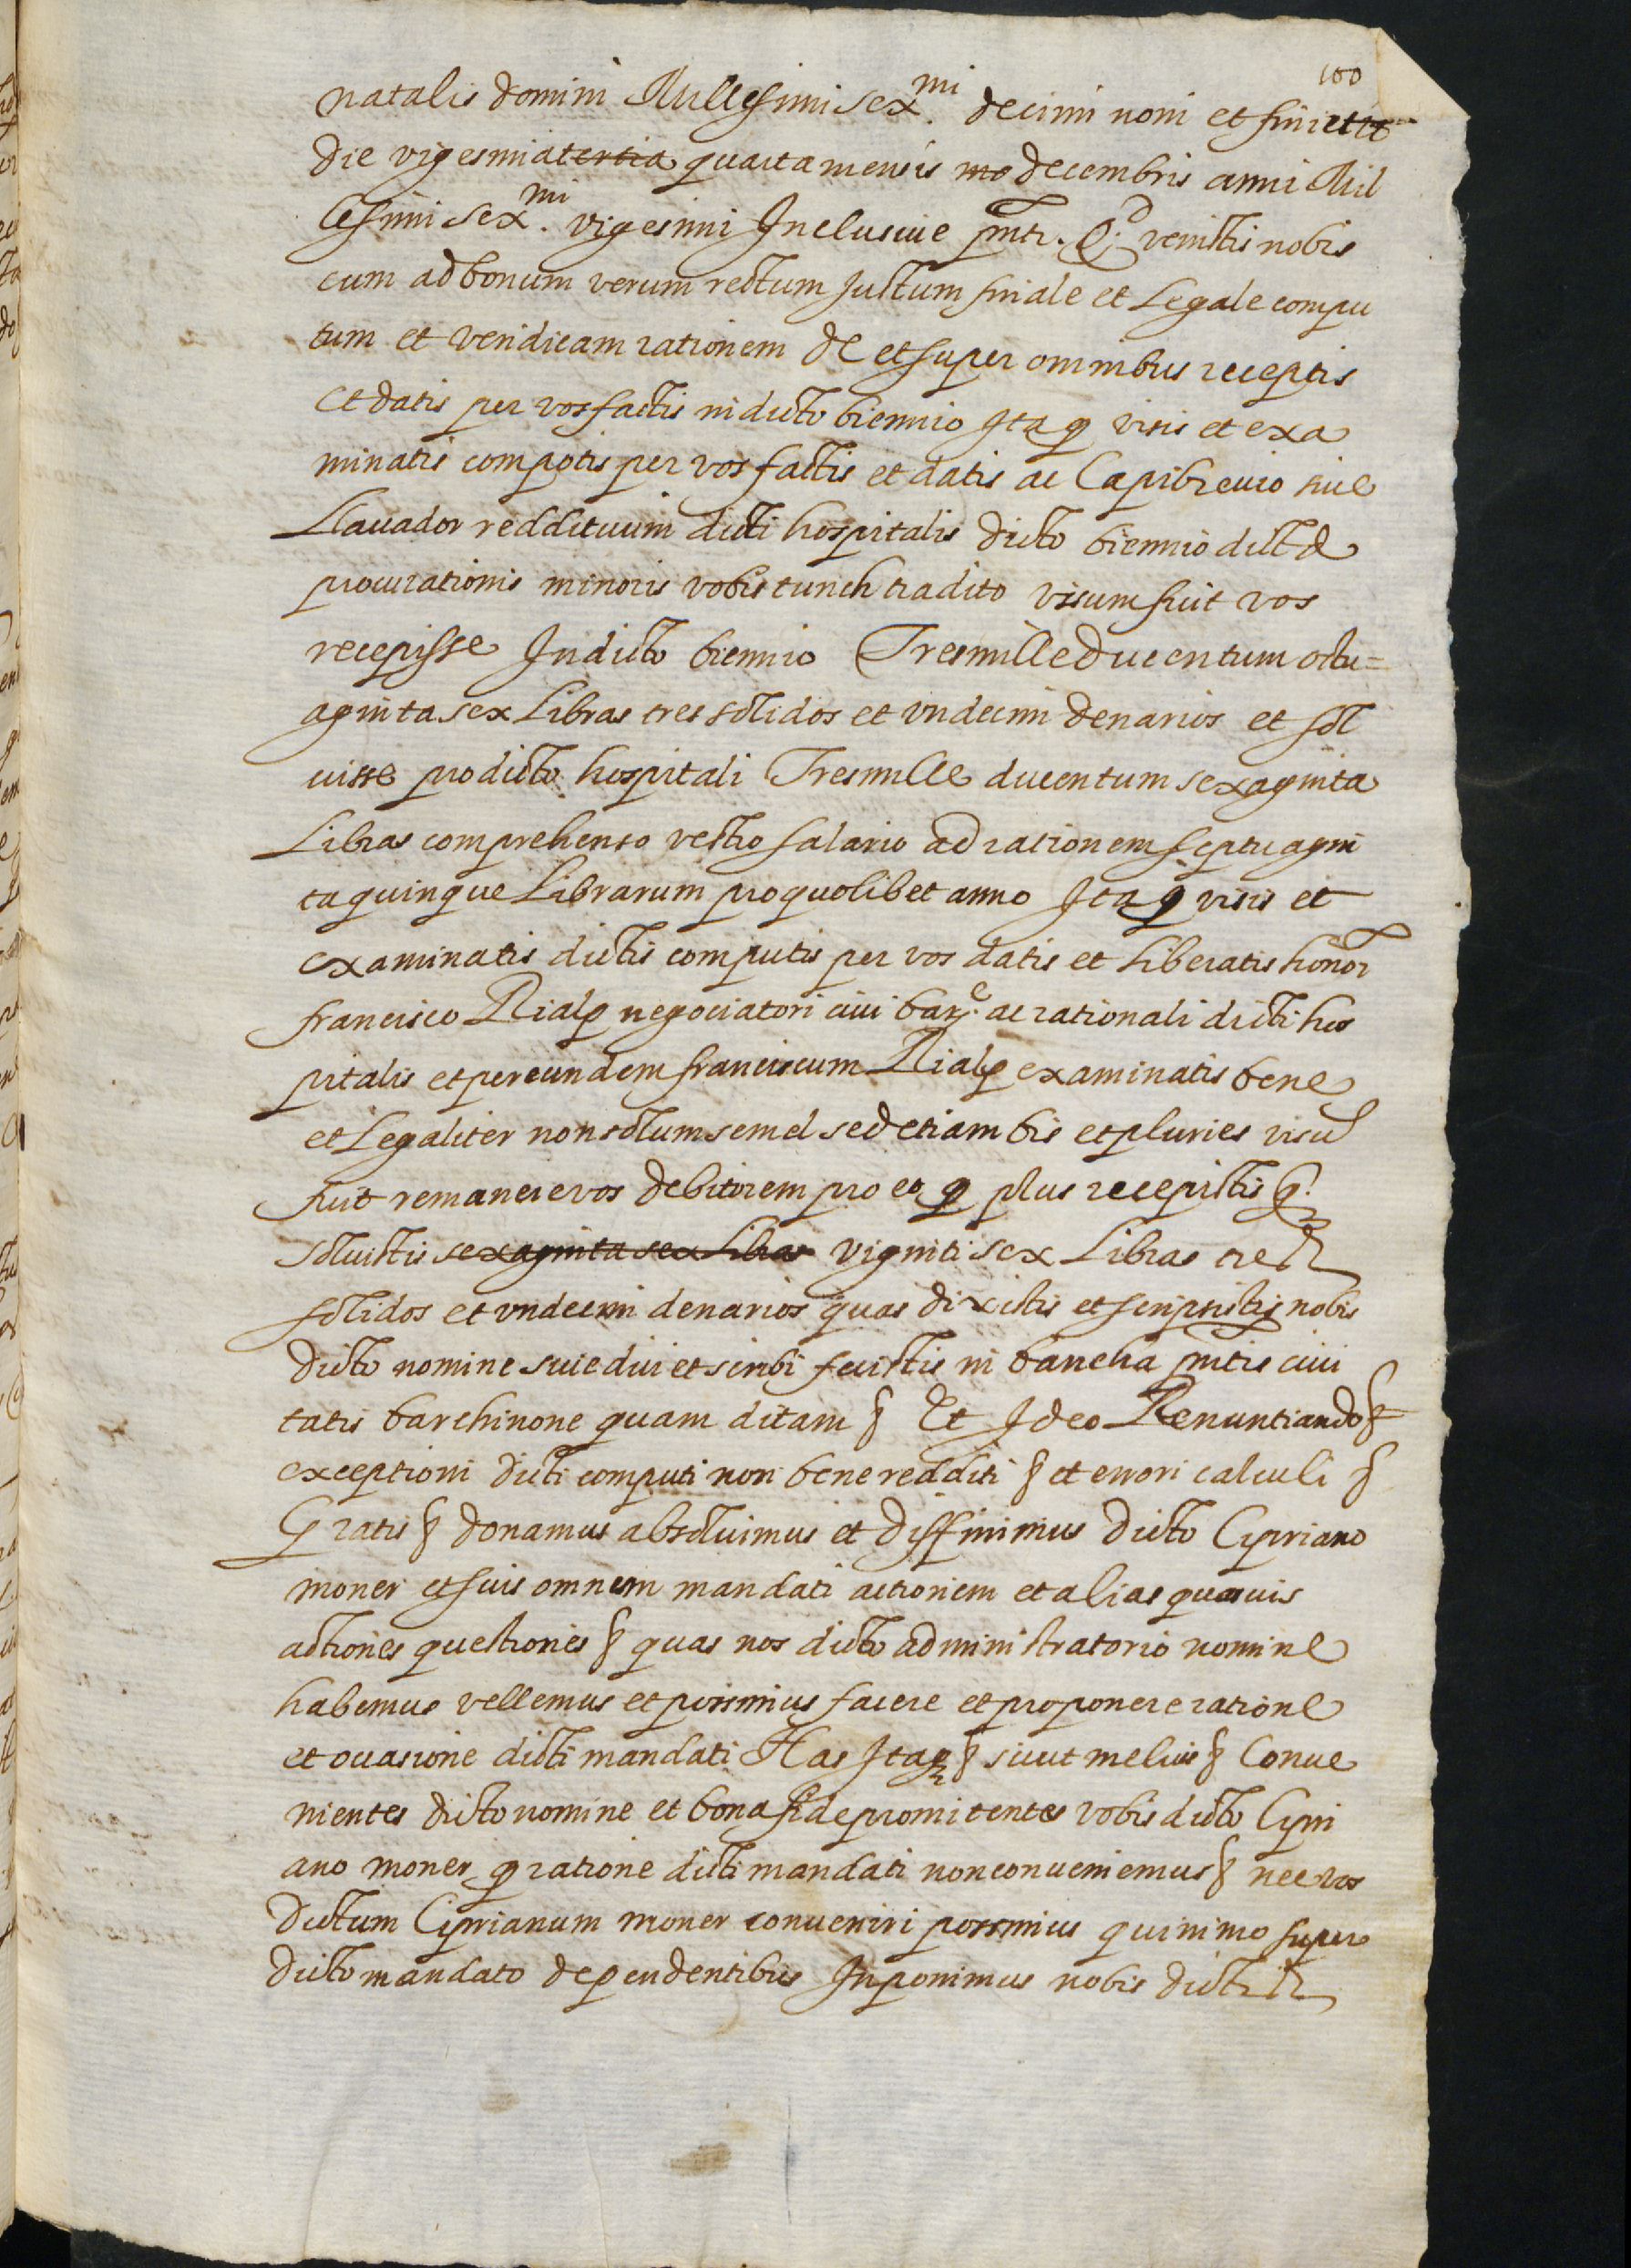 100
natalis domini Millesimi sex.mi decimi noni et finiet
die vigesmia tertia quarta mensis mo decembris anni Mil
lesimi sex.mi vigesimi Inclusiue pntr. Qd. venistis nobis
cum ad bonum verum rectum Justum finale et Legale compu
tum et veridicam rationem de et super omnibus receptis
et datis per vos factis in dicto biennio Itaq visis et exa
minatis compotis per vos factis et datis ac Capibreuio siue
Llauador reddituum dicti hospitalis dicto biennio dict
procurationis minoris vobis tunch tradito visum fuit vos
recepisse In dicto biennio Tresmille ducentum octu=
aginta sex Libras tres solidos et undecim denarios et sol
uisse pro dicto hospitali Tresmille ducentum sexaginta
Libras comprehenso vestro salario ad rationem septuagin
ta quinque Librarum pro quolibet anno Itaq visis et
examinatis dictis computis per vos datis et Liberatis honor
francisco Rialp negociatori ciui bar.e ac rationali dicti hos
pitalis et per eundem franciscum Rialp examinatis bene
et Legaliter non solum semel sed etiam bis et pluries visu
fuit remanere vos debitorem pro eo q plus recepistis q.
soluistis sexaginta sex Libras viginti sex Libras tres
solidos et undecim denarios quas dixistis et scripsistis nobis
dicto nomine siue dici et scribi fecistis in bancha pntis ciui
tatis barchinone quam ditam § Et Ideo Renuntiando §
exceptioni dicti computi non bene redditi § et errori calculi §
Gratis § donamus absoluimus et diffinimus dicto Cipriano
moner et suis omnem mandati actionem et alias quasuis
actiones questiones § quas nos dicto administratorio nomine
habemus vellemus et possimus facere et proponere ratione
et occasione dicti mandati Has Itaq § sicut melius § Conue
nientes dicto nomine et bona fide promitentes vobis dicto Cipri
ano moner q ratione dicti mandati non conueniemus § nec vos
dictum Ciprianum moner conueniri possimus quinimo super
dicto mandato dependentibus Inponimus nobis dictis